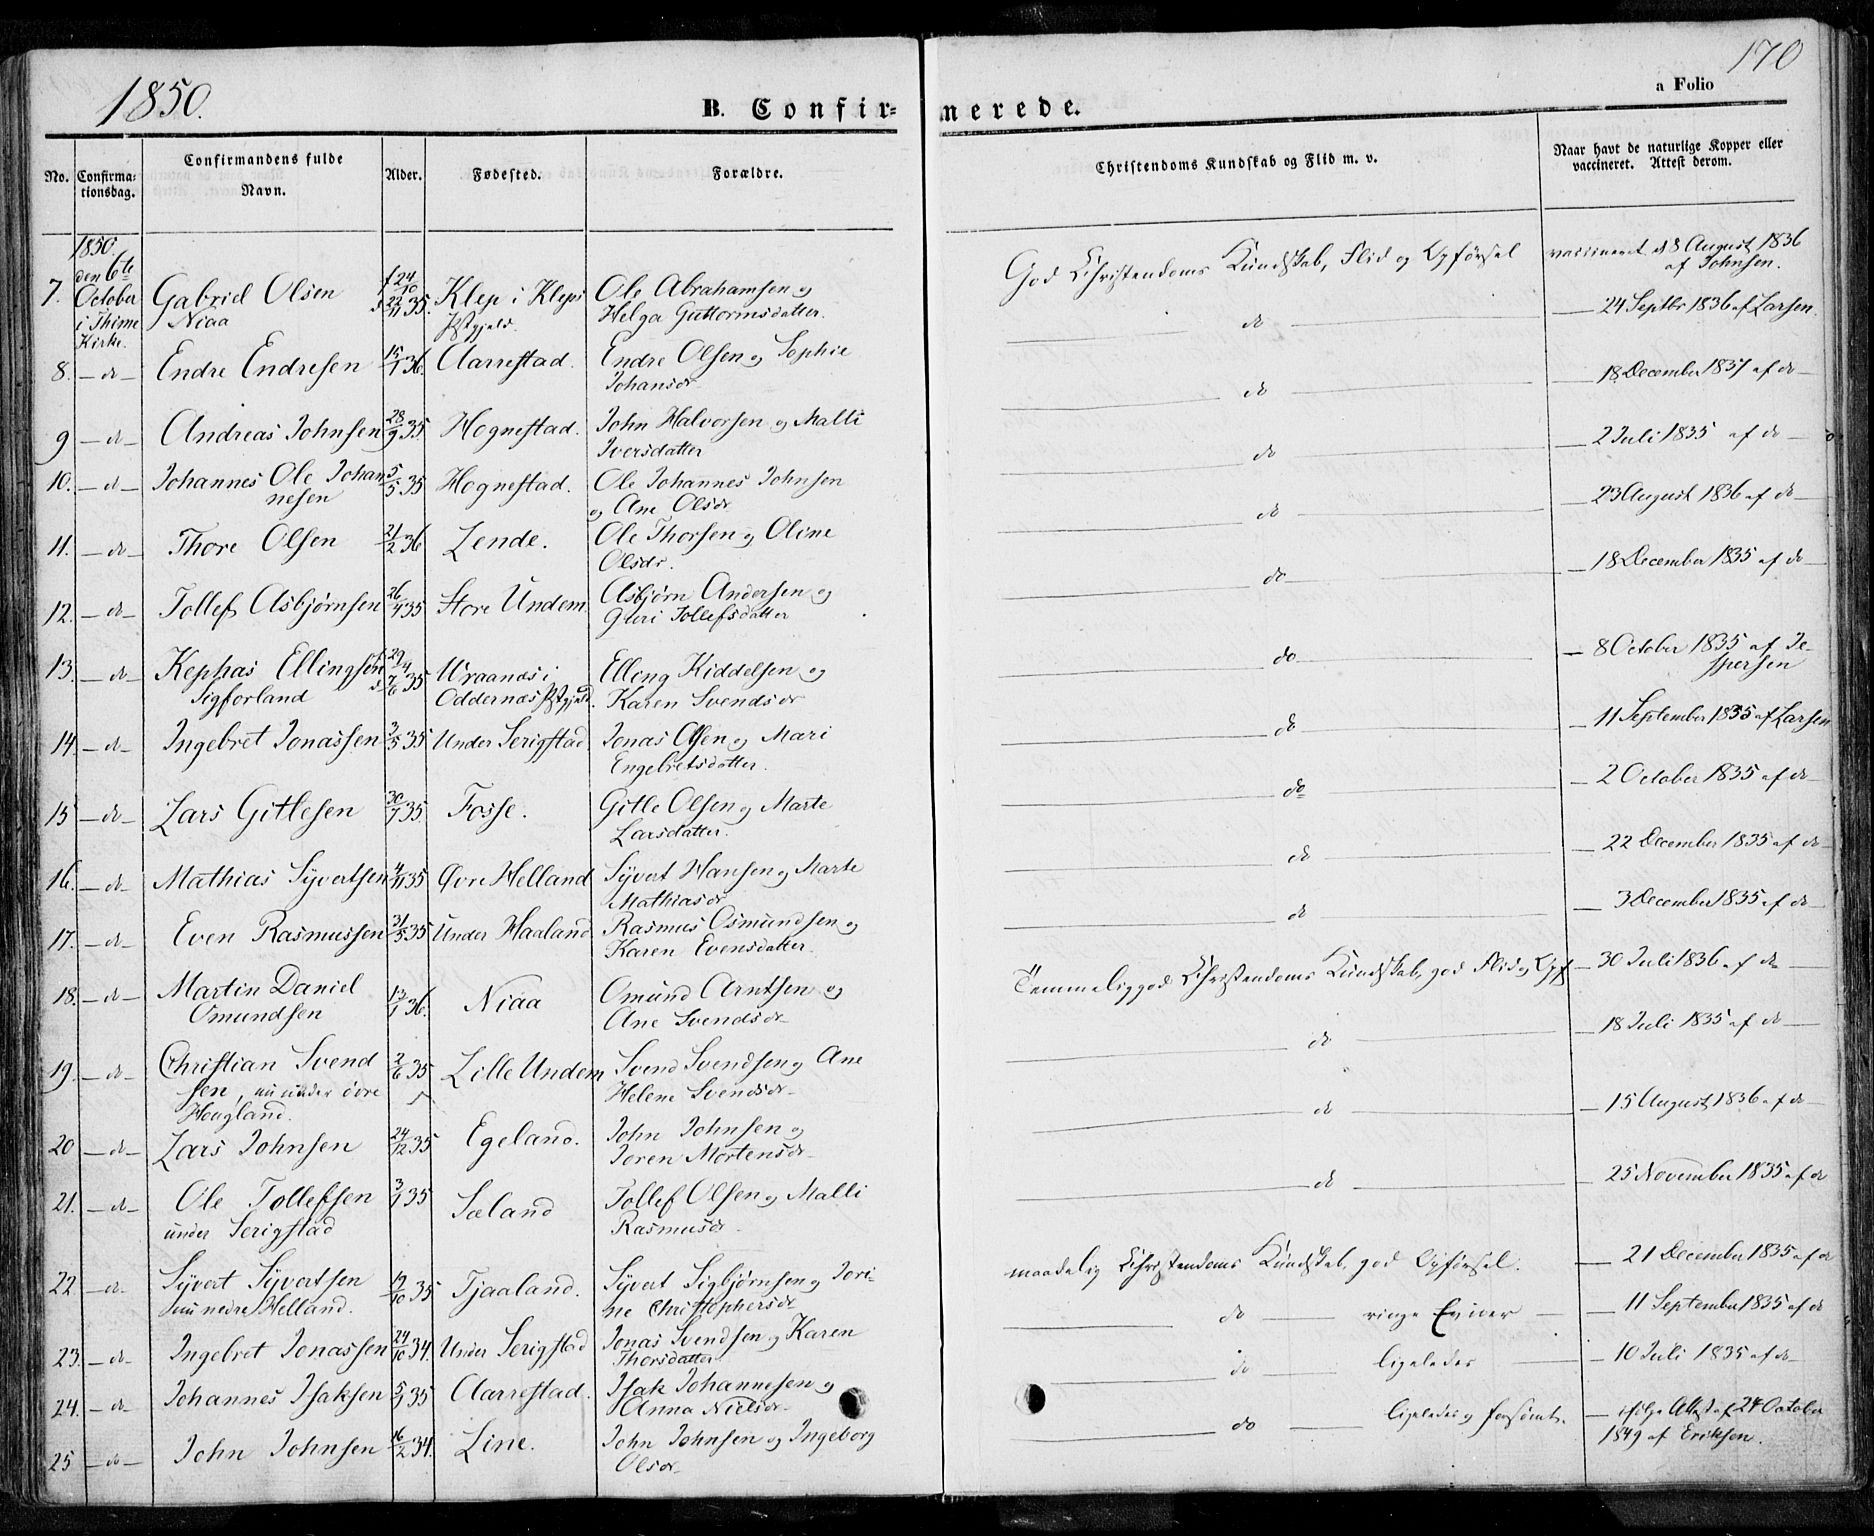 1850.
170
B. Confirmerede.
a Folio
No.
Confirmationsdag.
Confirmandens fulde Navn.
Alder.
Fødested.
Forældre.
Christendoms Kundskab og Flid m. v.
Naar havt de naturlige Kopper eller vaccineret. Attest derom.
1850.
7. den 6te October i Thime Kirke. Gabriel Olsen Niaa f 24/10 d 22/11 35. Klep i Kleps Pstgjeld. Ole Abrahamsen og Helga Guttormsdatter. God Christendoms Kundskab, Flid og Opførsel vaccineret d 8 August 1836 af Johnsen.
8. -do- Endre Endresen 15/1 36. Aarrestad. Endre Olsen og Sophie Johansdr do 24 Septbr 1836 af Larsen.
9 -do- Andreas Johnsen 28/9 35 Hognestad. John Halvorsen og Malli Iversdatter do 18 December 1837 af do
10. -do- Johannes Ole Johannesen 5/5 35 Hognestad. Ole Johannes Johnsen og Ane Olsdr do 2 Juli 1835 af do
11. -do- Thore Olsen 21/2 36 Lende. Ole Thorsen og Oline Olsdr. do 23 August 1836 af do
12. -do- Tollef Asbjørnsen 26/1 35 Store Undem. Asbjørn Andersen og Guri Tollefsdatter do 18 December 1835 af do
13. -do- Kephas Ellingsen Sigforland f 29/4 d 7/6 35 Uraanes i Oddernæs Pstgjeld. Elling Kiddelsen og Karen Svendsdr do 8 October 1835 af Jespersen
14. -do- Ingebret Jonassen 3/5 35 Under Serigstad Jonas Olsen og Mari Engebretsdatter. do 11 September 1835 af Larsen
15 -do- Lars Gitlesen 30/7 35 Fosse. Gitle Olsen og Marte Larsdatter. do 2 October 1835 af do
16. -do- Mathias Syvertsen 4/11 35 Øvre Helland Syvert Hansen og Marte Mathiasdr do 22 December 1835 af do
17. -do- Even Rasmussen 31/5 35 Under Haaland Rasmus Osmundsen og Karen Evensdatter. do 3 December 1835 af do
18. -do- Martin Daniel Omundsen 13/1 36. Niaa Omund Arntsen og Ane Svendsdr Temmelig god Christendoms Kundskab, god Flid og Opf 30 Juli 1836 af do
19. -do- Christian Svendsen, nu under øvre Hougland. 2/6 35 Lille Undem Svend Svendsen og Ane Helene Svendsdr do 18 Juli 1835 af do
20 -do- Lars Johnsen 24/12 35 Egeland. John Johnsen og Joren Mortensdr do 15 August 1836 af do
21. -do- Ole Tollefsen under Serigstad 3/1 35 Sæland Tollef Olsen og Malli Rasmusdr do 25 November 1835 af do
22 -do- Syvert Syvertsen nu nedre Helland. 12/10 35 Tjaaland. Syvert Sigbjørnsen og Jorine Christophersdr maadelig Christendoms Kundskab, god Opførsel. 21 December 1835 af do
23. -do- Ingebret Jonassen 24/10 34. Under Serigstad Jonas Svendsen og Karen Thorsdatter do ringe Evner 11 September 1835 af do
24. -do- Johannes Isaksen 5/1 35 Aarrestad. Isak Johannesen og Anna Nielsdr do ligeledes 10 Juli 1835 af do
25 -do- John Johnsen 16/2 34. Line. John Johnsen og Ingeborg Olsdr do ligeledes og forsømt. ifølge Attest af 24 October 1849 af Eriksen.